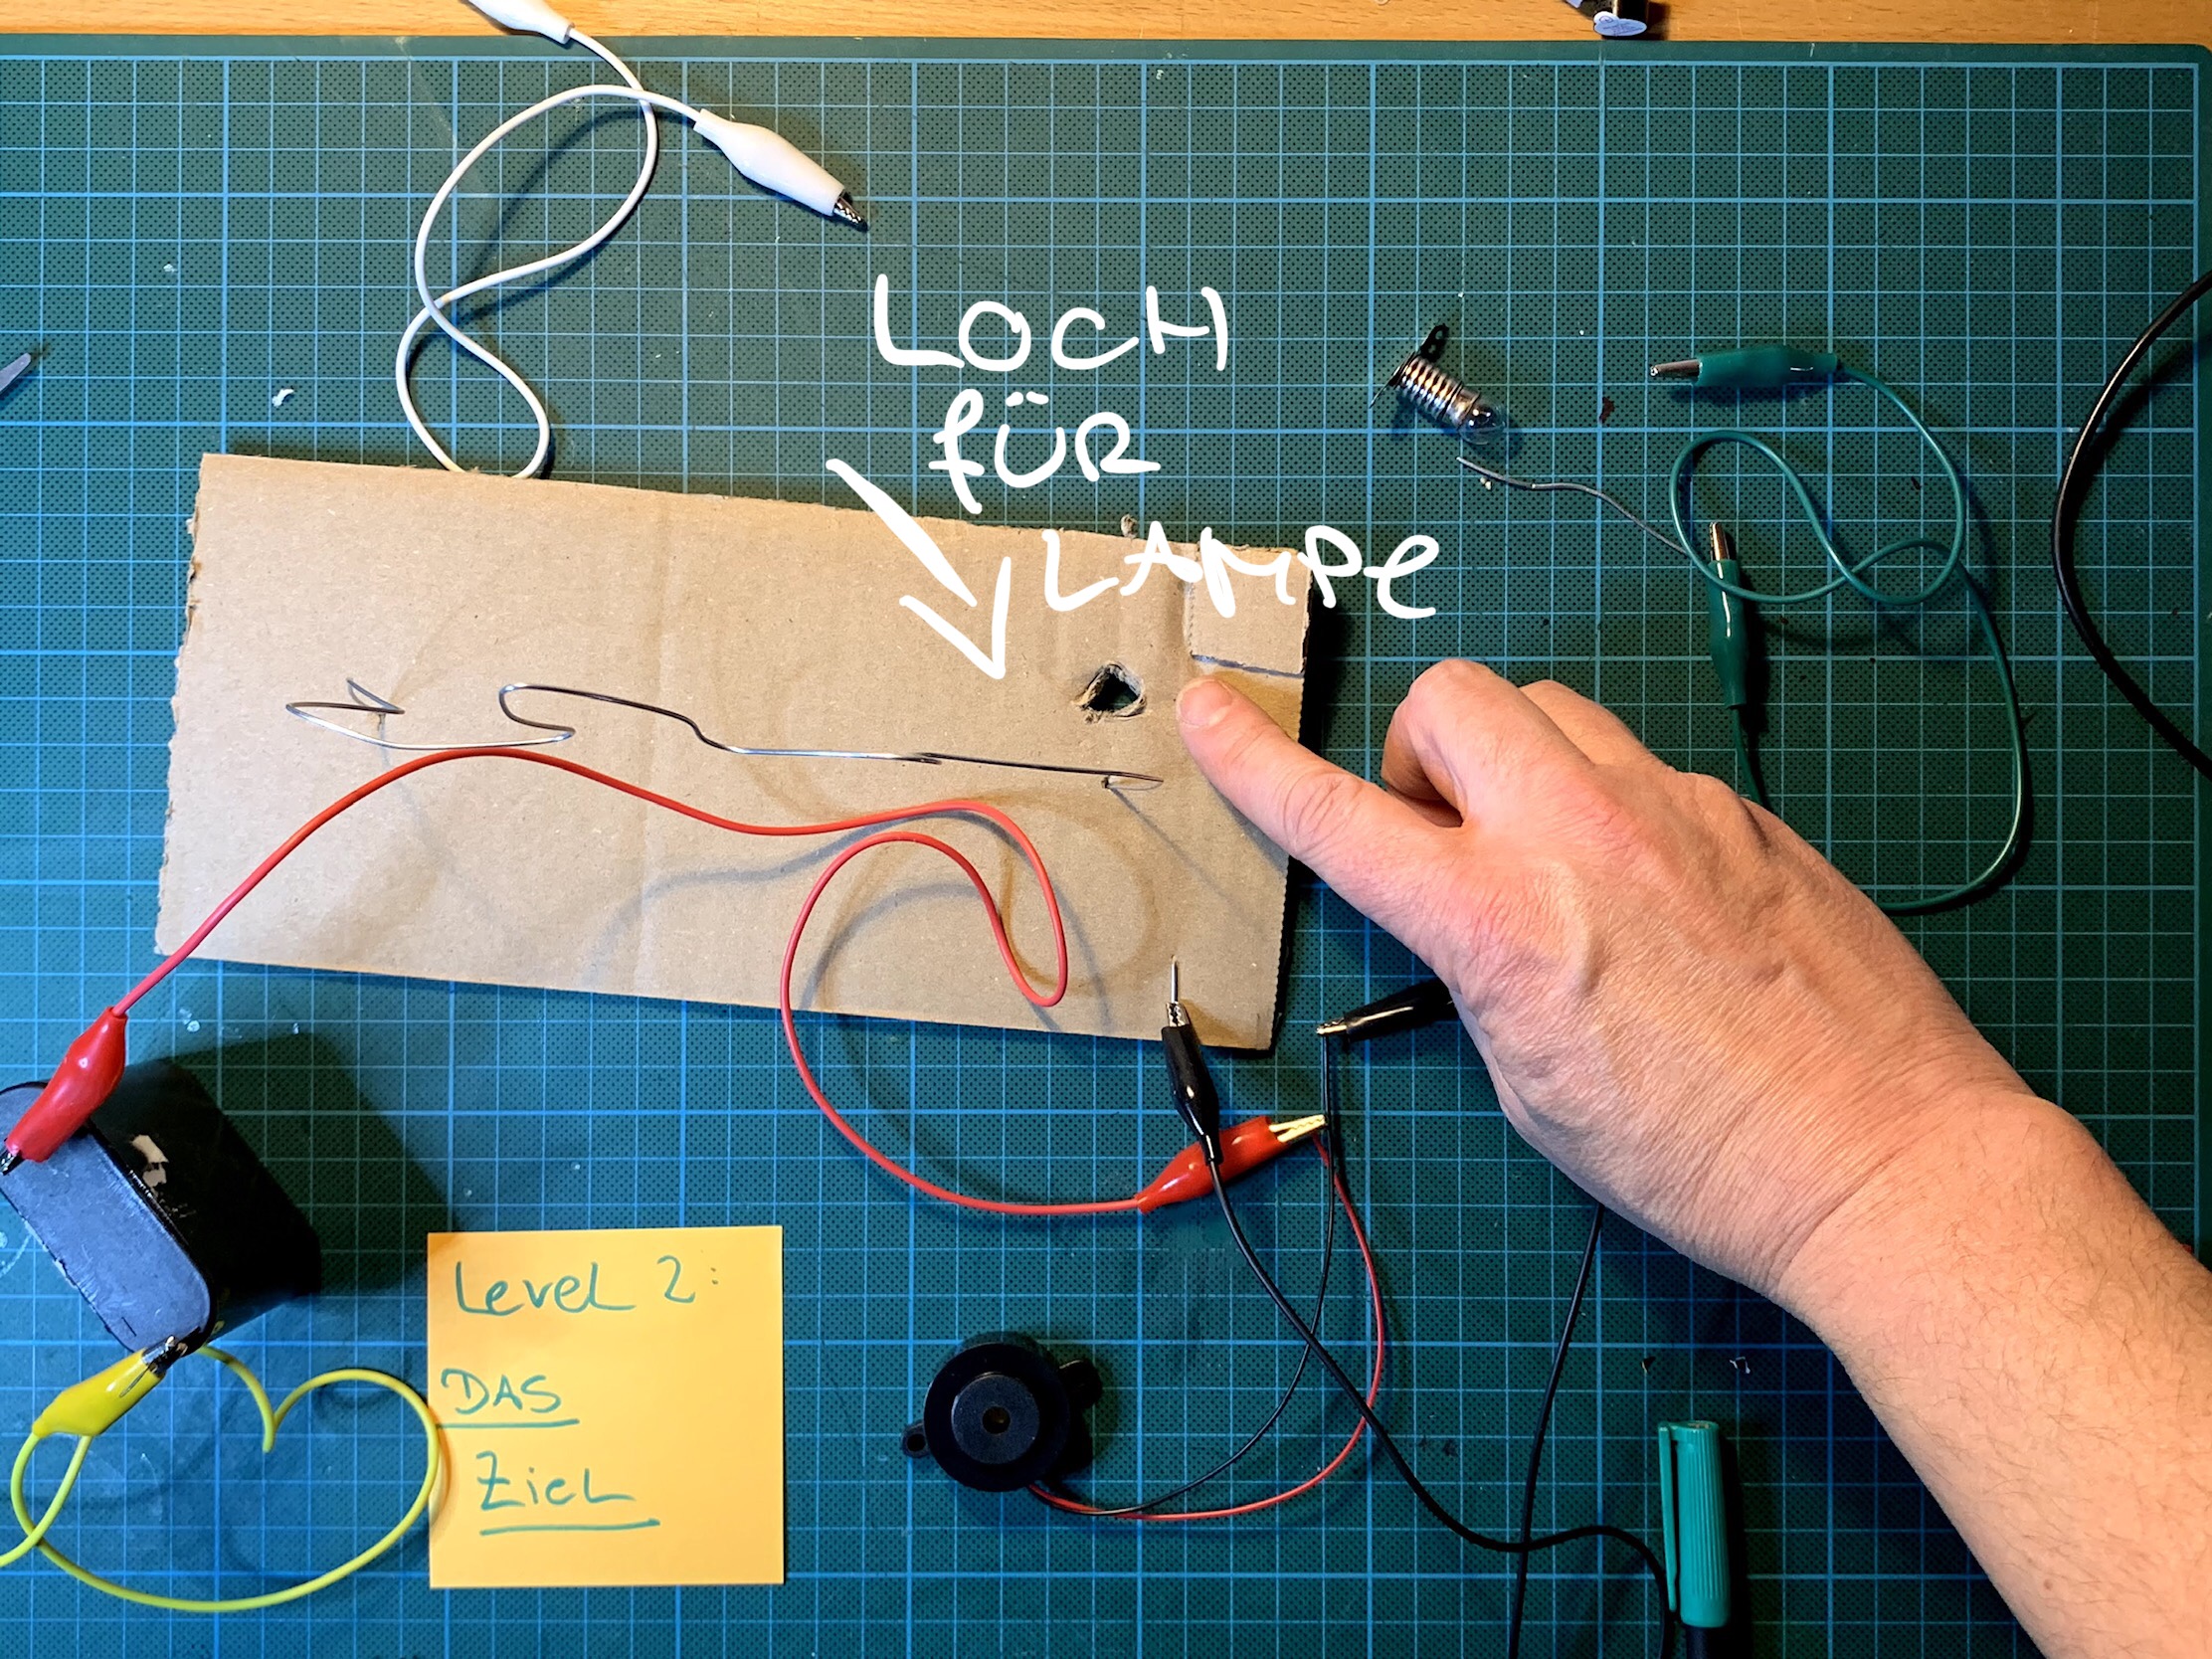 LOCH
FÜR
LAMPE
Level 2:
DAS
Ziel